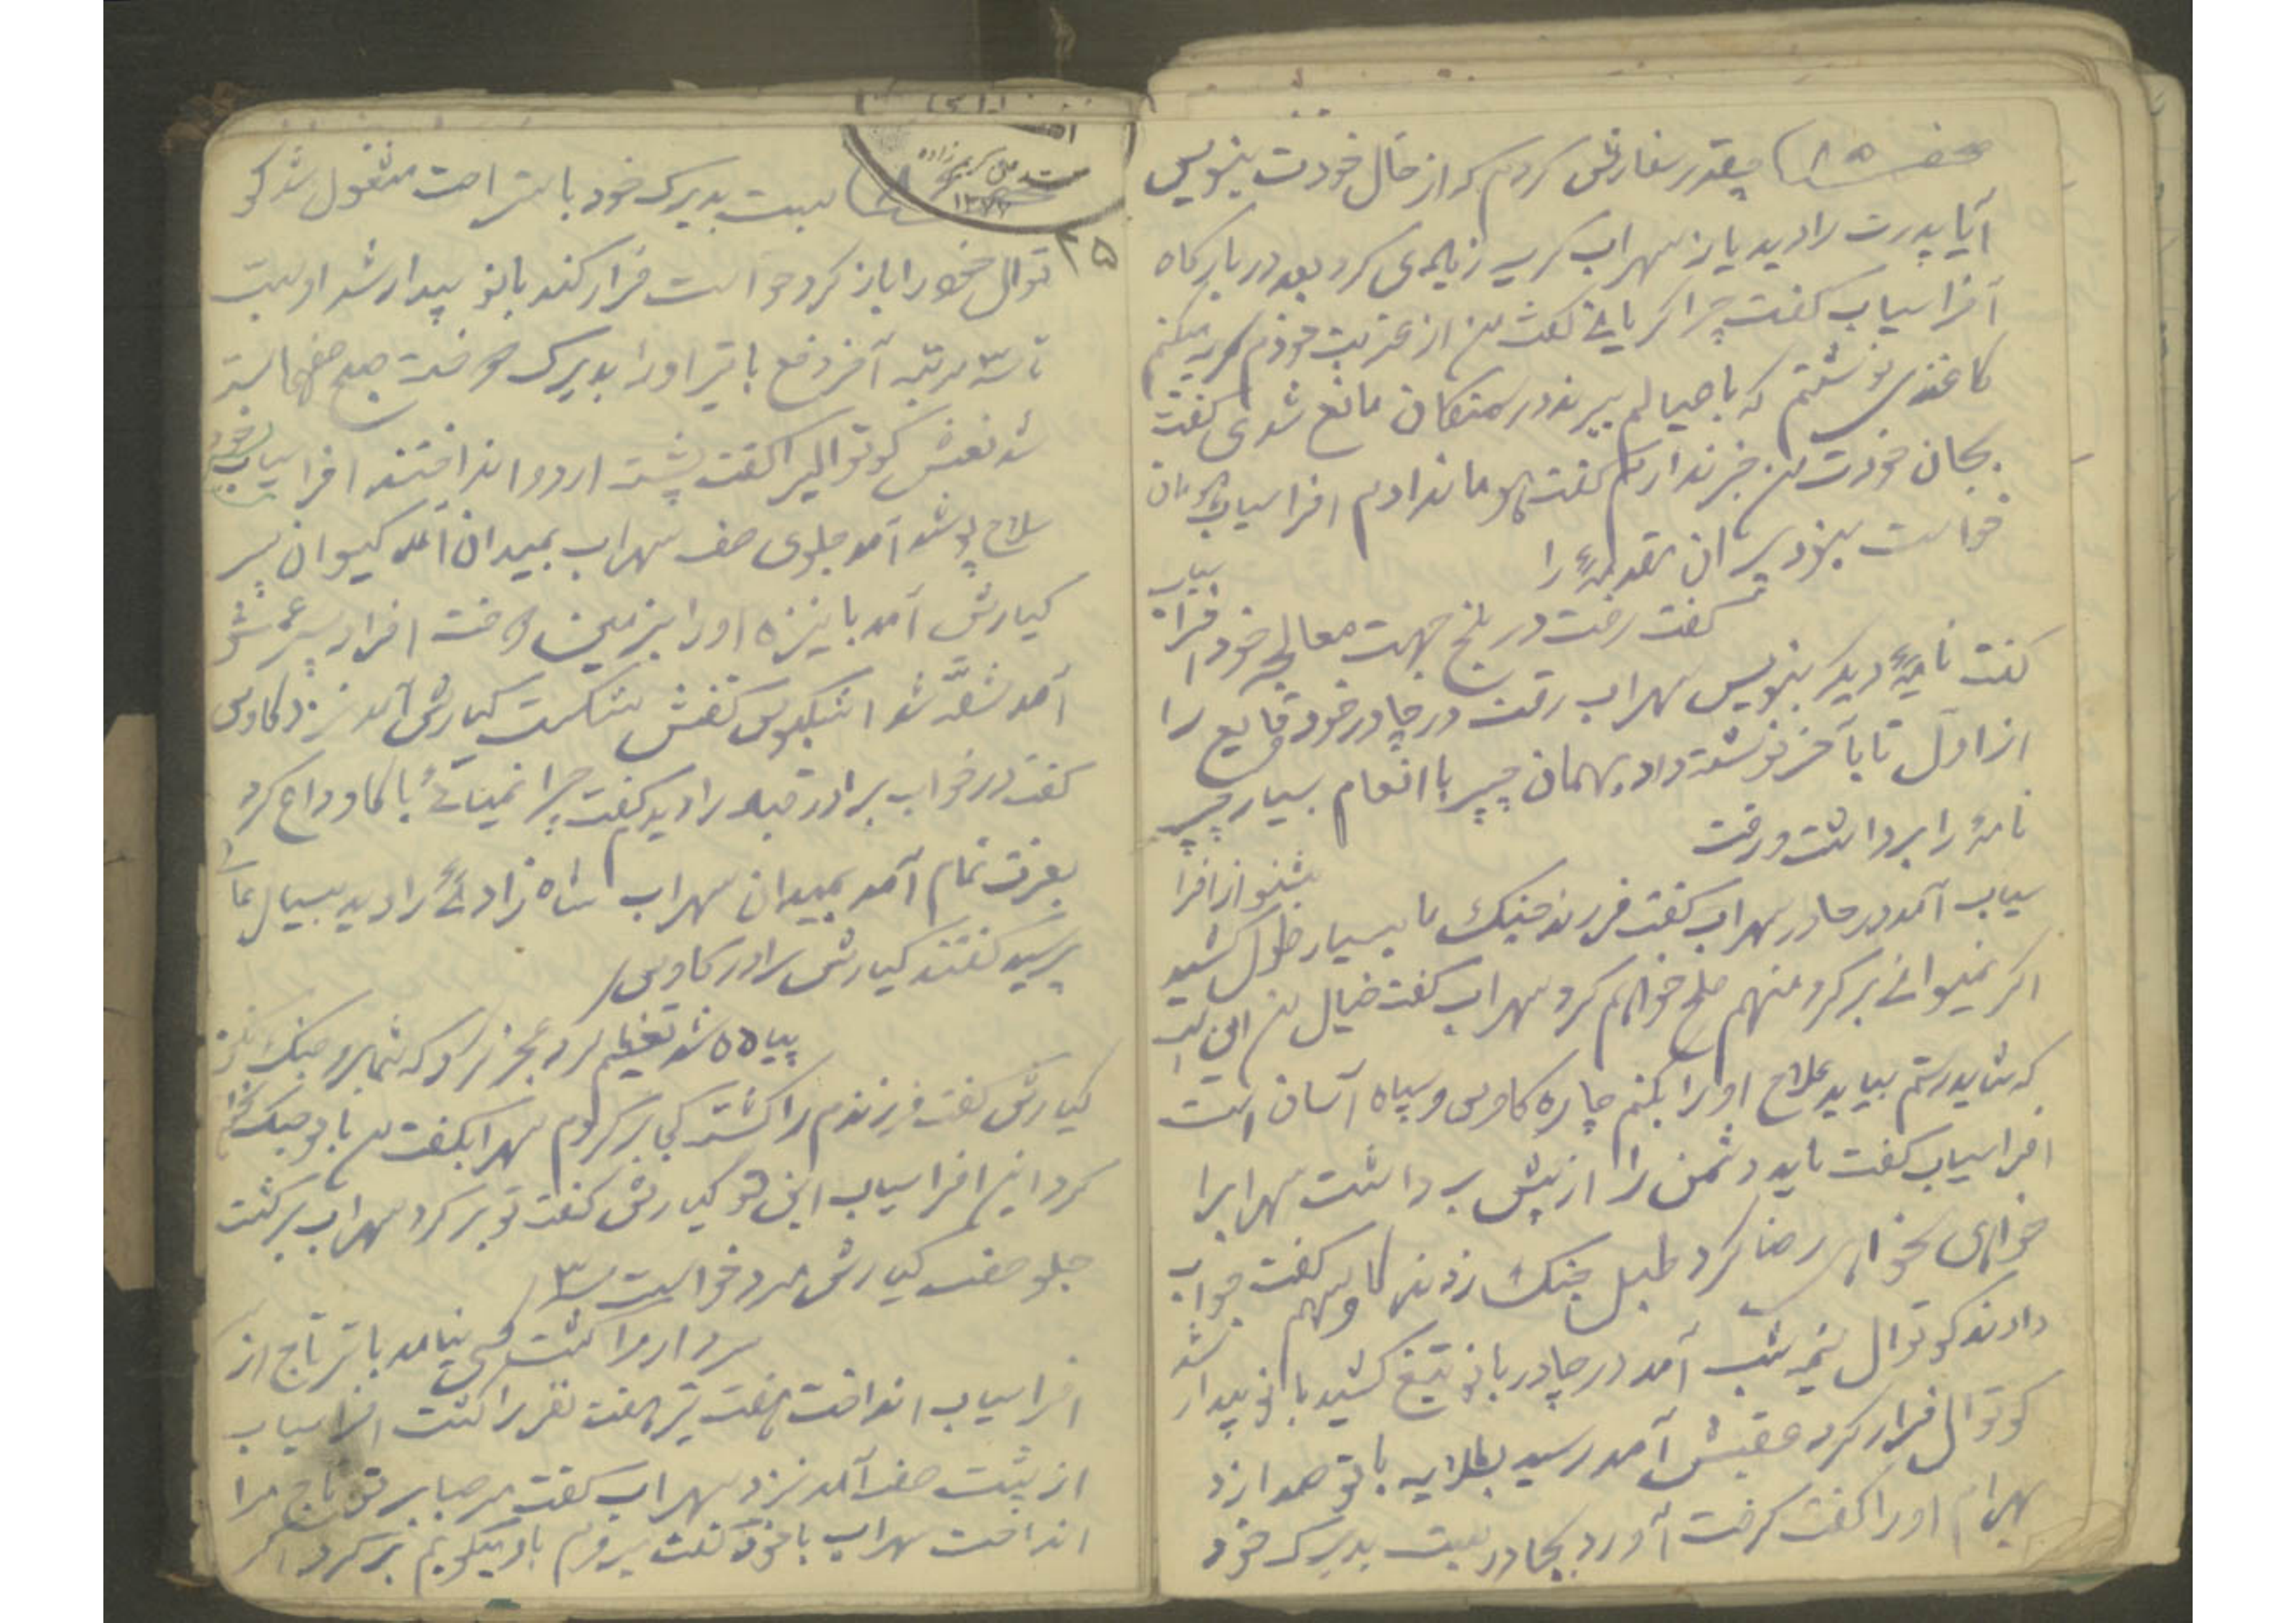 صفحه ۸۵ چقدر سفارش کردم که از حال خودت بنویس
آیا پدرت را دید یا نه سهراب گریه زیادی کرد بعد در بارگاه
افراسیاب گفت چرا گریانی گفت من از غربت خودم گریه میکنم
کاغذی نوشتم که با عیالم ببرند در سمنگان مانع شدی گفت
بجان خودت من خبر ندارم گفت بهومان دادم افراسیاب هومان
خواست نبود پیران مقدمهٔ را
گفت رفت در بلخ جهت معالجه خود افراسیاب
گفت نامهٔ دیگر بنویس سهراب رفت در چادر خود وقایع را
از اول تا بآخر نوشته داد بهمان چپر با انعام بسیار چپر
نامهٔ را برداشت و رفت
بشنو از افرا
سیاب آمد در چادر سهراب گفت فرزند جنگ ما بسیار طول کشید
اگر نمیتوانی برگرد منهم صلح خواهم کرد سهراب گفت خیال من این است
که شاید رستم بیاید علاج او را بکنم چاره کاوس و سپاه آسان است
افراسیاب گفت باید دشمن را از پیش برداشت سهرابرا
خواهی نخواهی رضا کرد طبل جنگ زدند کاوس هم گفت جواب
دادند کوتوال نیمه شب آمد در چادر بانو تیغ کشید بانو بیدار شد
کوتوال فرار کرد عقبش آمد رسید بطلایه بانو صدا زد
بهرام او را گفت گرفت آورد بچادر بست بدیرک خود
بست بدیرک خود باستراحت مشغول شد کو
توال خود را باز کرد خواست فرار کند بانو بیدار شد او بست
تا سه مرتبه آخر دفع با تیر او را بدیرک دوخت صبح صفها بسته
شد نعش کوتوالرا گفت پشت اردو انداختند افراسیاب خود
سلاح پوشد آمد جلوی صف سهراب بمیدان آمد کیوان پسر
کیارش آمد با نیزه او را بزمین دوخت افراد پسر عمش
آمد شقه شد اشکبوس کتفش شکست کیارش آمد نزد کاوس
گفت در خواب برادر قباد را دیدم گفت چرا نمیائی با کاو وداع کرد
بعزت تمام آمد بمیدان سهراب شاه زادهٔ را دید
پرسید گفتند کیارش برادر کاوس
پیاده شد تعظیم کرد عجز کرد که شما برو جنگ نکن
کیارش گفت فرزندم را کشتند کجا برگردم سهراب گفت من با تو جنگ نخواهم
کرد اینهم افراسیاب این تو کیارش گفت تو برگرد سهراب برگشت
جلو صف کیارش مرد خواست ۳
سردار را کشت کسی نیامد با تیر تاج از
افراسیاب انداخت هفت تیر هفت نفر را کشت افراسیاب
از پشت صف آمد نزد سهراب گفت مرحبا بر تو تاج مرا
انداخت سهراب با خود گفت میروم باو میگویم برگرد اگر
۲۵
سید علی کریم زاده